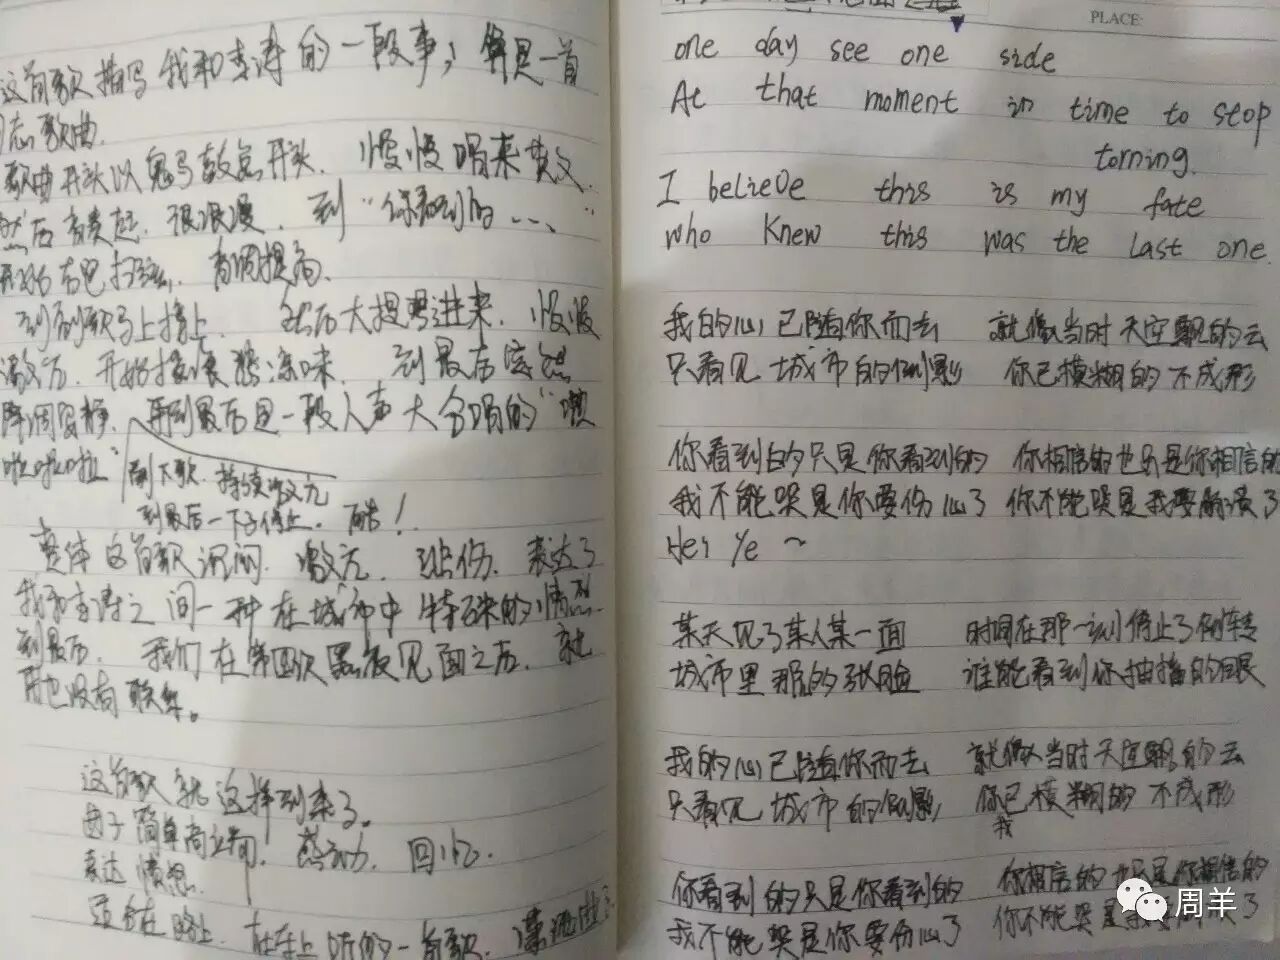 这首歌描写我和李涛的一段事，算是一首
同志歌曲。
歌曲开头以鬼马鼓点开头，慢慢唱来
然后 很浪漫，到“你看到的……”
开始 音调提高。
到副歌马上接上。然后大提琴进来，慢慢
激亢，开始 悲凉味，到最后突然
降调留静，再到最后是一段人声大合唱的“啦
啦啦啦”
副下歌，持续激亢
到最后一下子停止。酷！
整体这首歌沉闷、激亢、悲伤，表达了
我和李涛之间一种在城市中特殊的情感
到最后，我们在第四次黑夜见面之后，就
再也没有联系。
这首歌就这样到来了。
由于简单 ，感动，回忆。
表达愤怒。
在路上，在车上听的一首歌，
PLACE:
one day see one side
At that moment in time to stop
torning.
I believe this is my fate
who knew this was the last one.
我的心已随你而去 就像当时天空飘的云
只看见城市的倒影 你已模糊的不成形
你看到的只是你看到的 你相信的也只是你相信的
我不能哭是你要伤心了 你不能哭是我要崩溃了
Hei Ye ~
某天见了某人某一面 时间在那一刻停止了倒转
城市里那的张脸 谁能看到你抽搐的眼
我的心已随你而去 就像当时天空飘的云
只看见城市的倒影 你已模糊的不成形
我
你看到的只是你看到的 你相信的也只是你相信的
我不能哭是你要伤心了 你不能哭是我要崩溃了
周羊